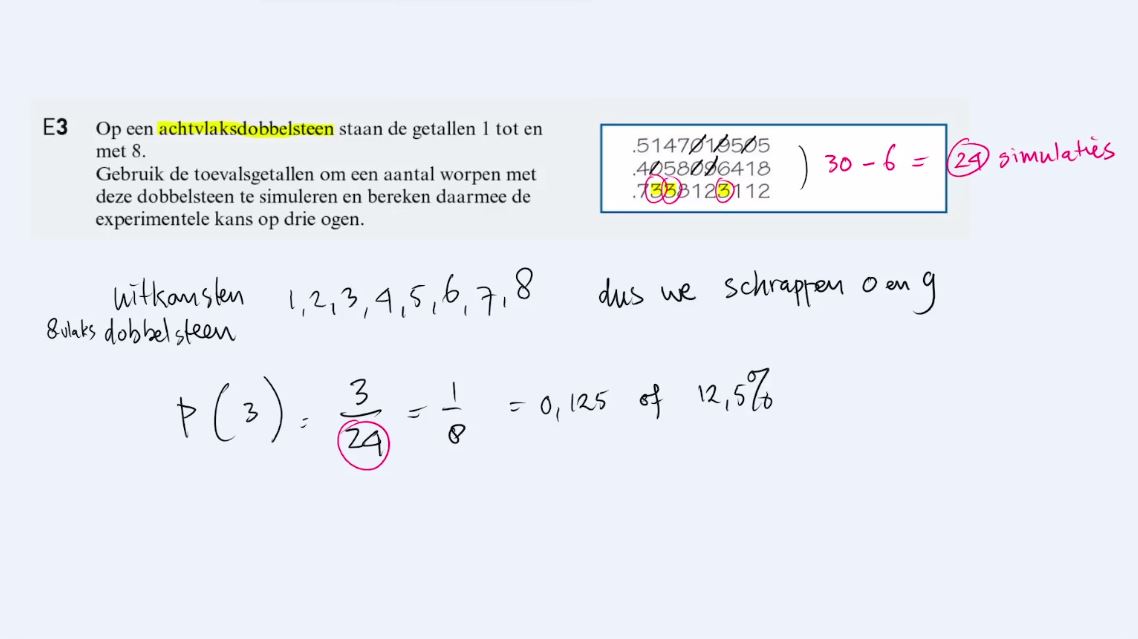 E3 Op een achtvlaksdobbelsteen staan de getallen 1 tot en
met 8.
Gebruik de toevalsgetallen om een aantal worpen met
deze dobbelsteen te simuleren en bereken daarmee de
experimentele kans op drie ogen.
.5147019505
.4058096418
.7338123112
) 30 - 6 = 24 simulaties
uitkomsten 1, 2, 3, 4, 5, 6, 7, 8 dus we schrappen 0 en 9
8vlaks dobbelsteen
P(3) = 3/24 = 1/8 = 0,125 of 12,5%